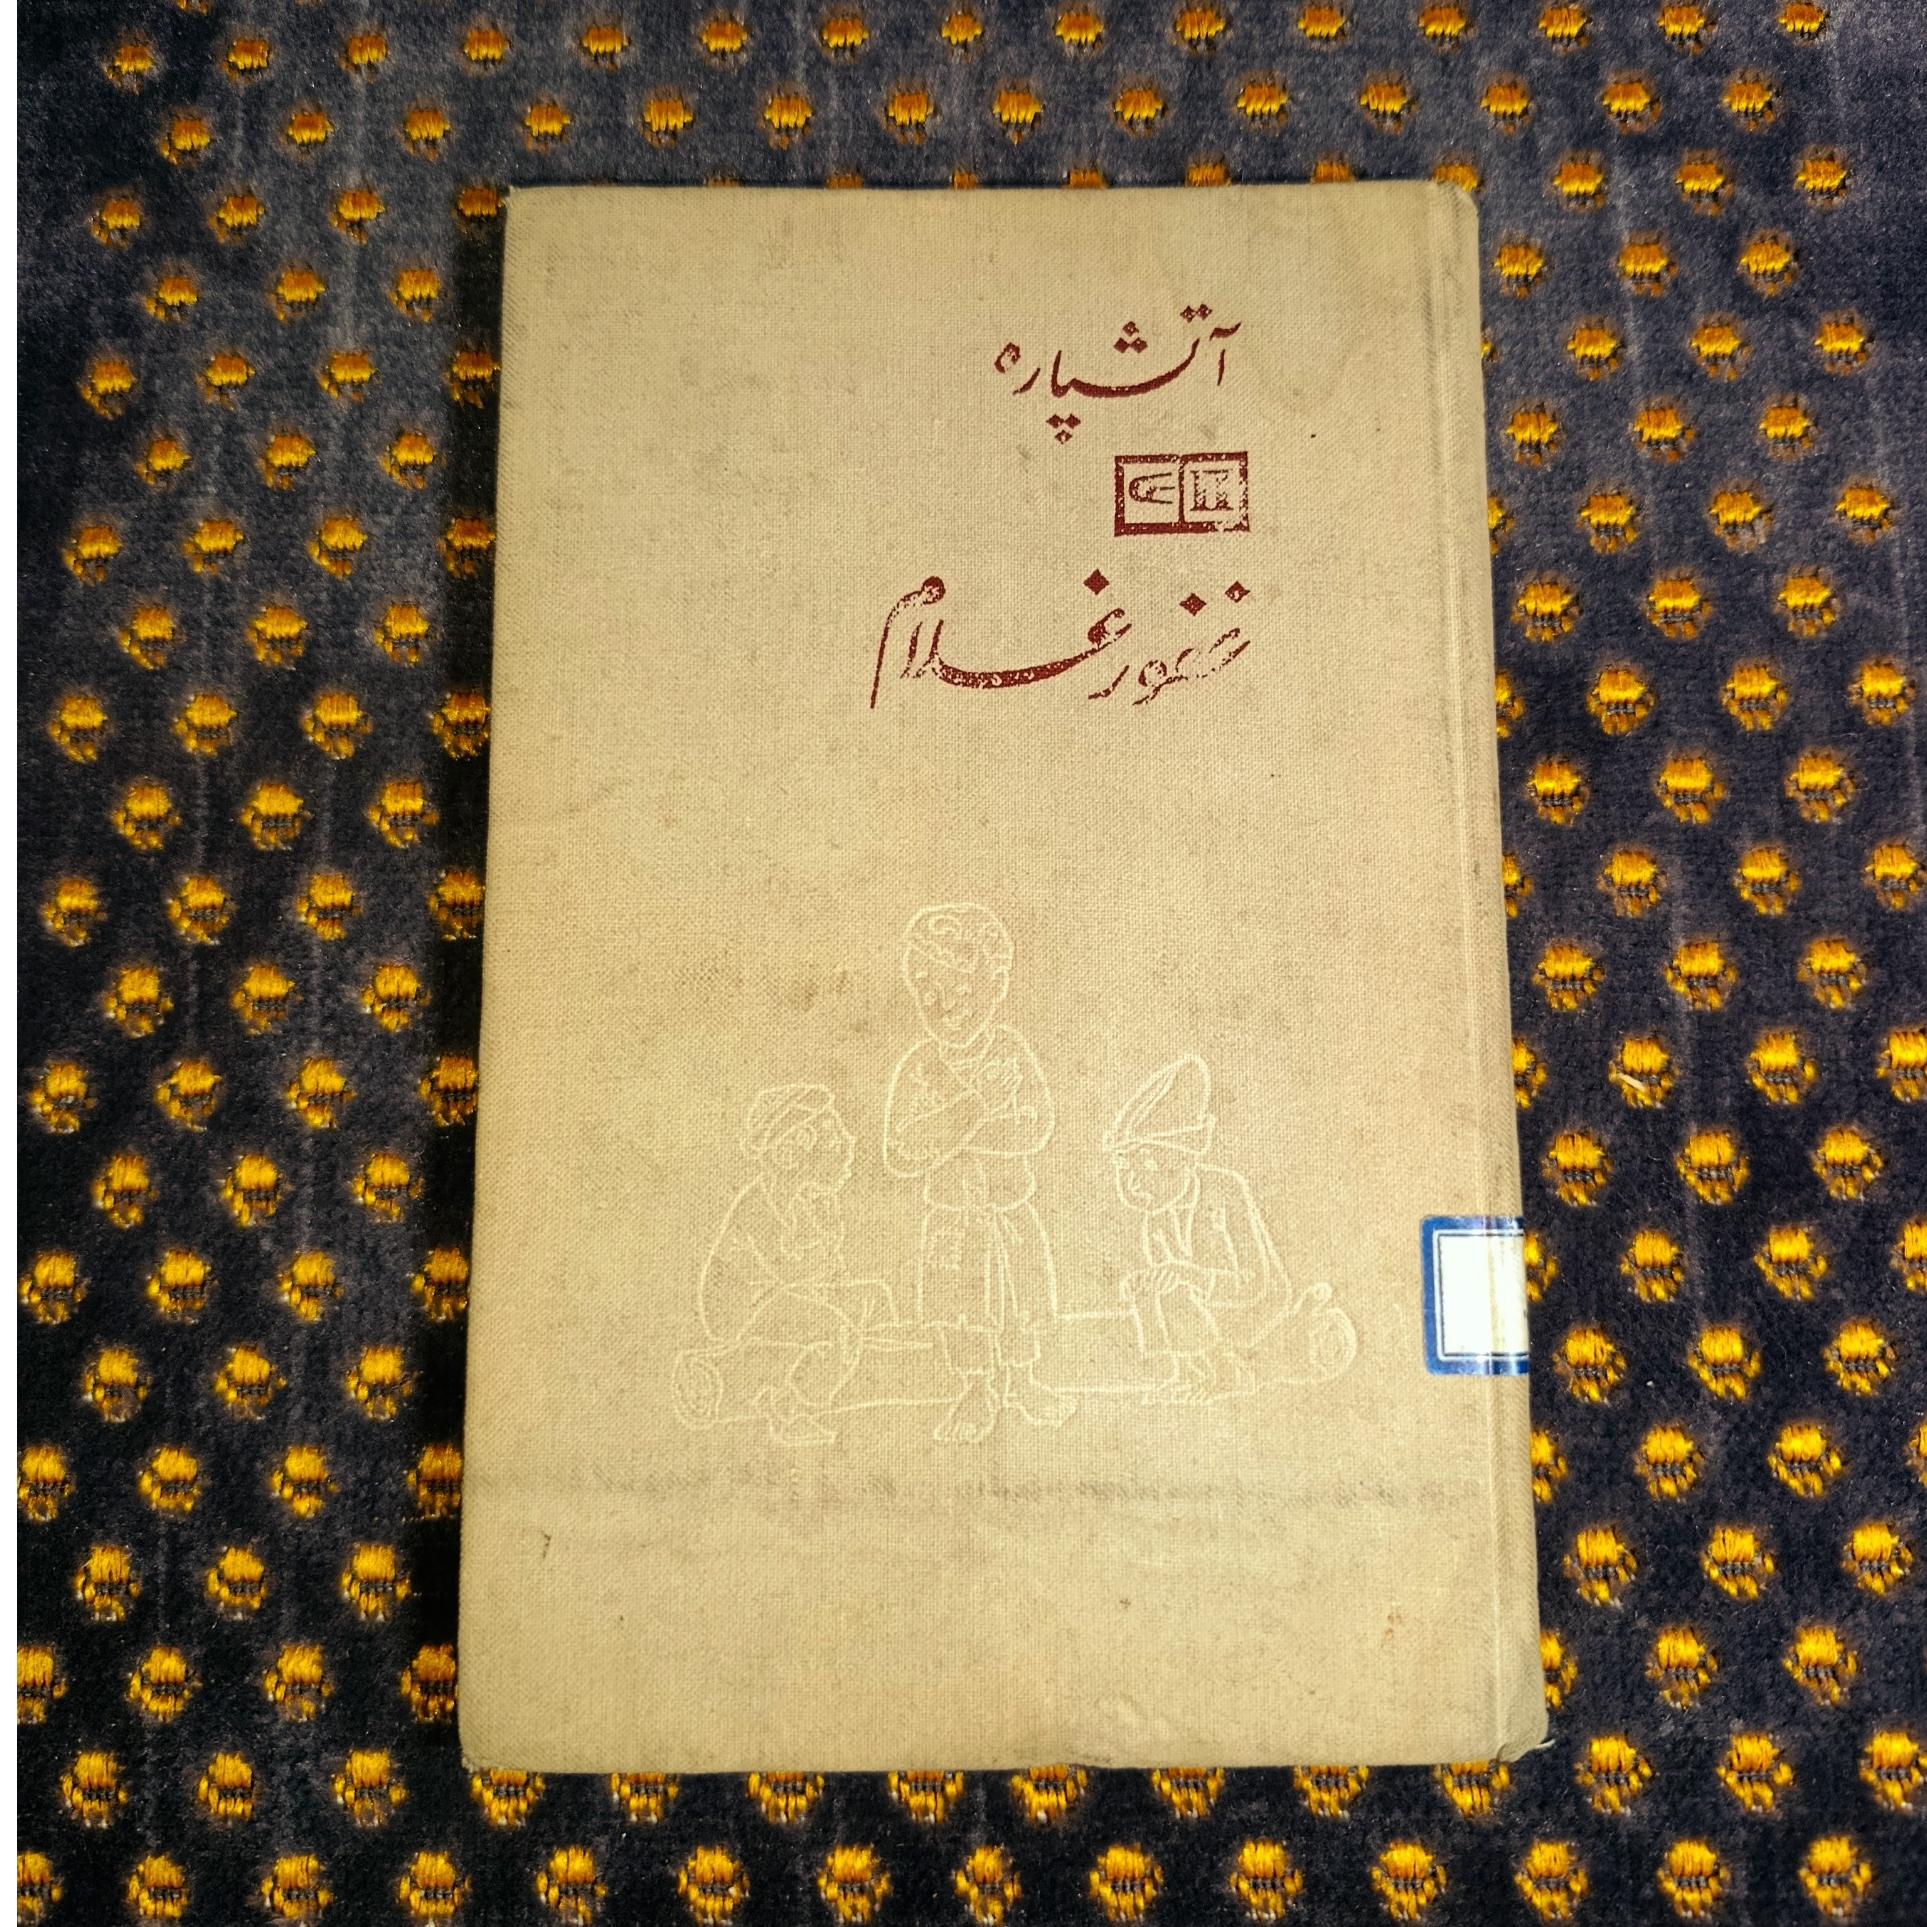 آتشپاره
غفور غلام